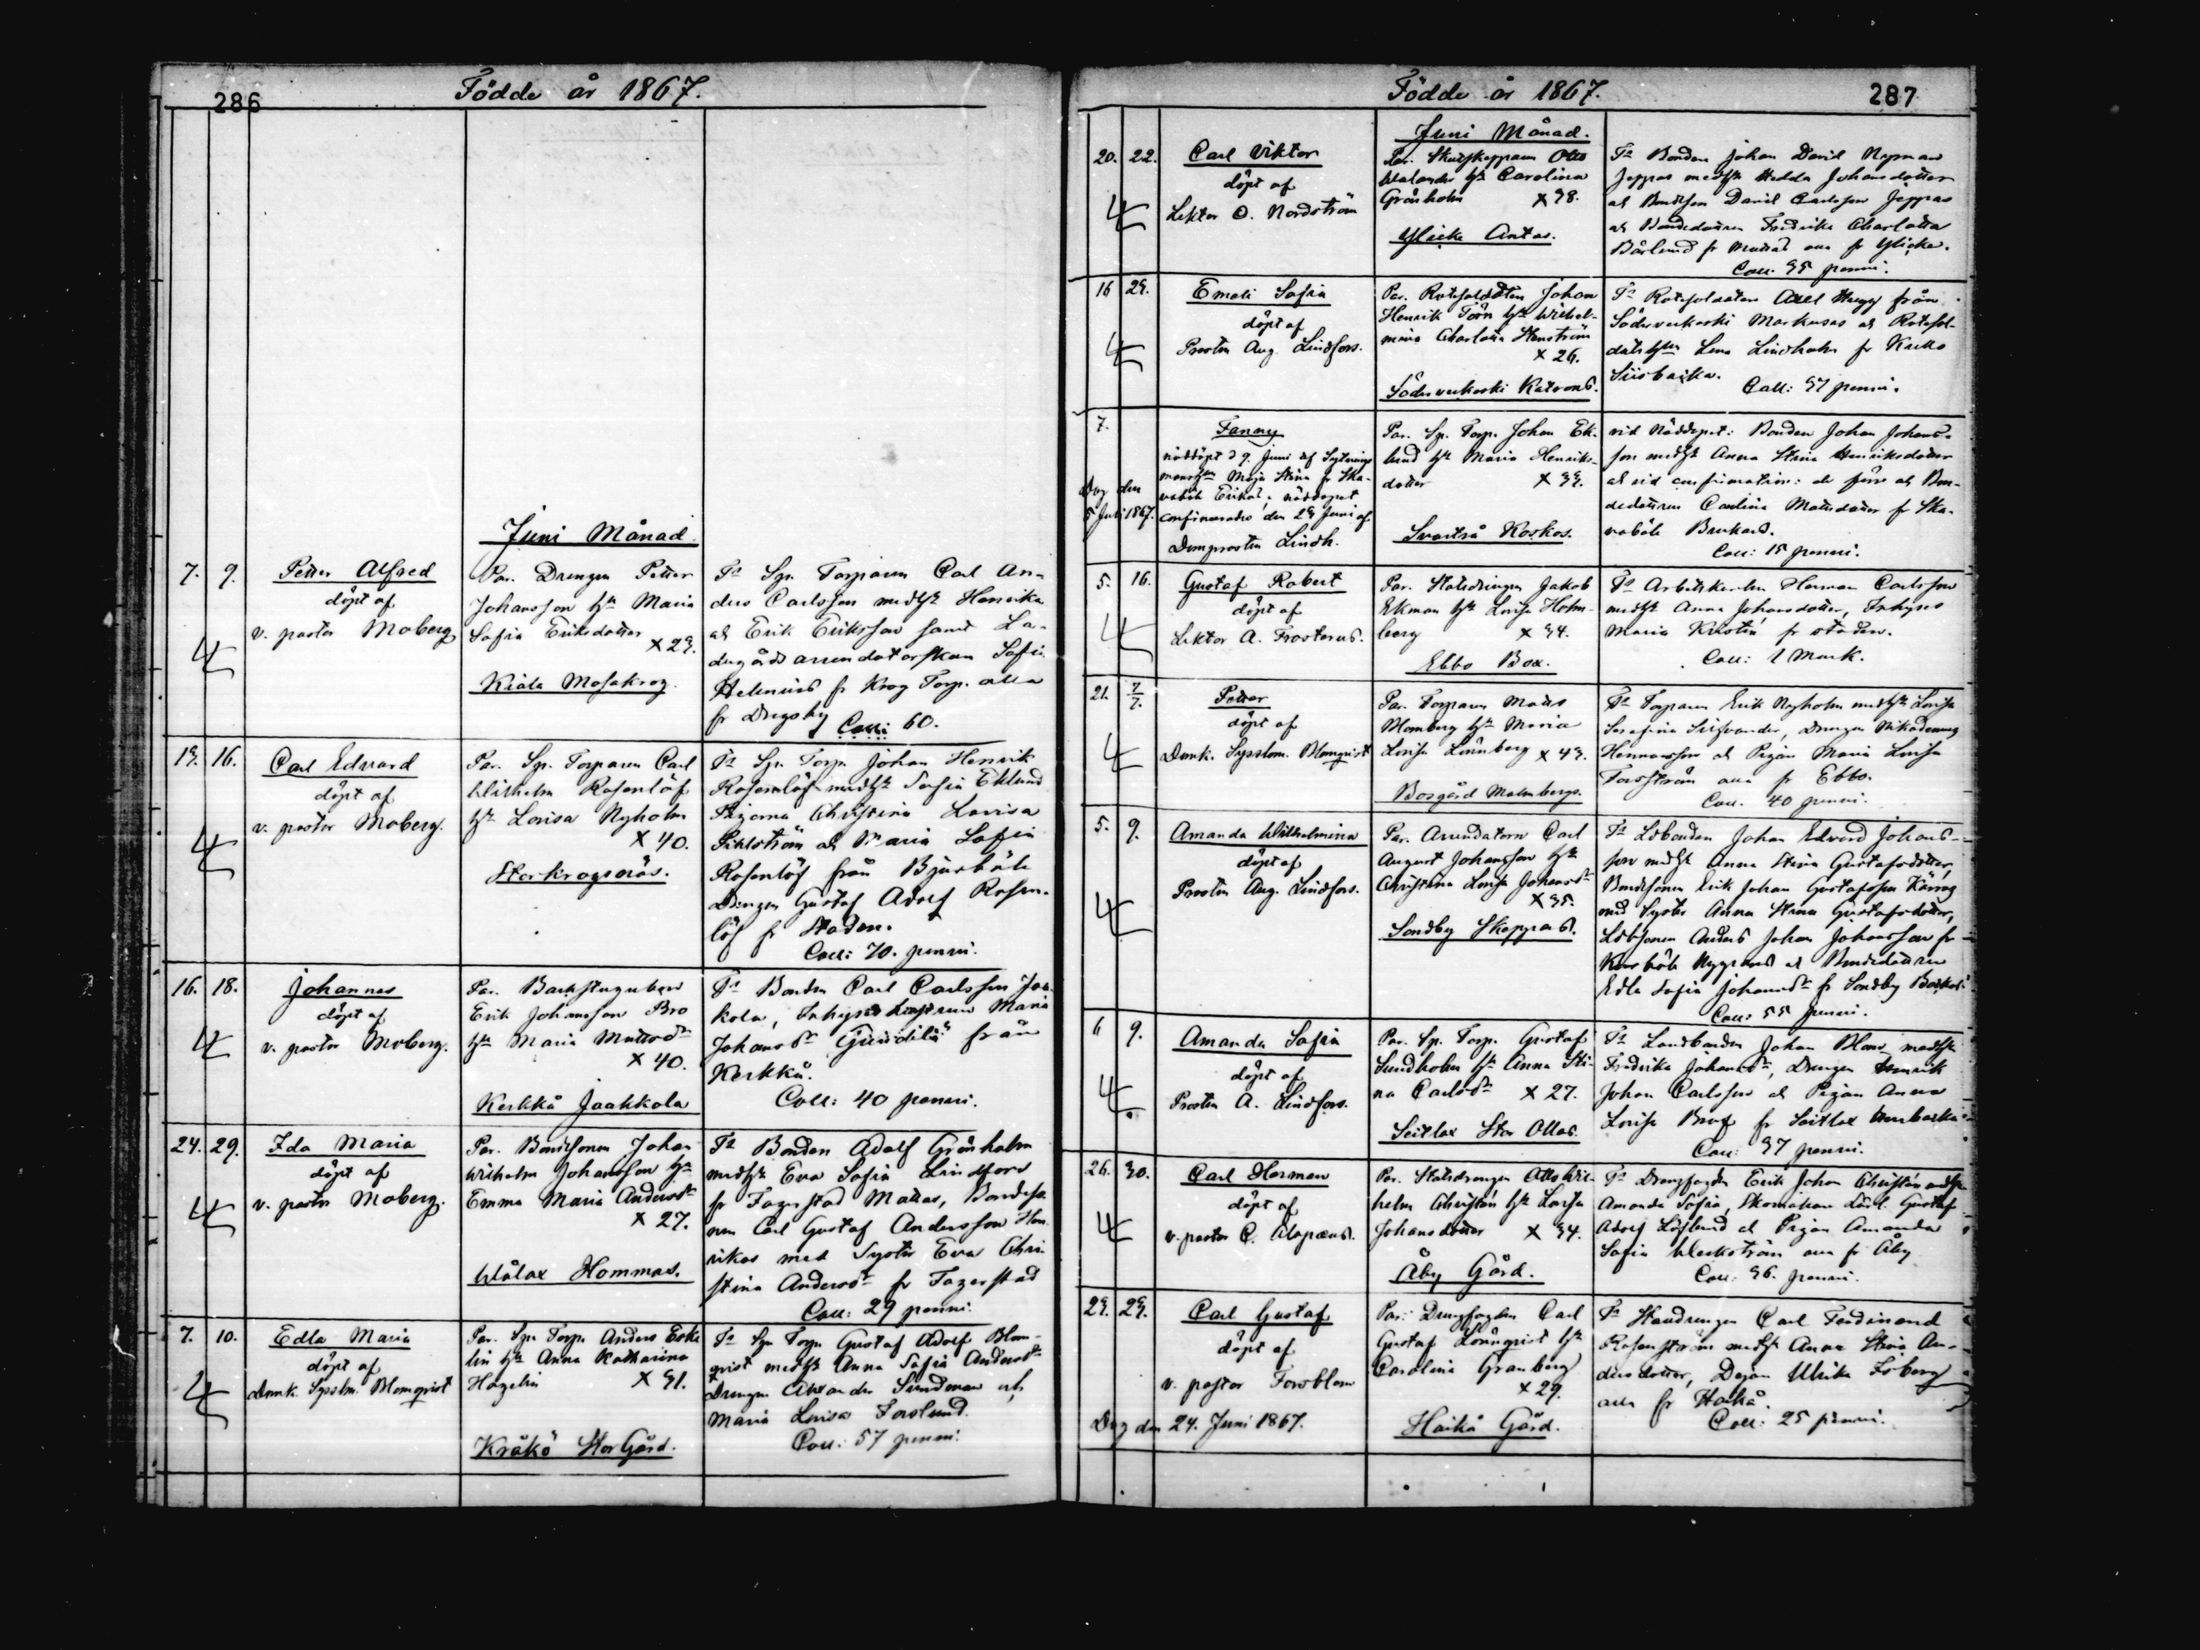 286
Födde år 1867.
Juni Månad.
7. 9. Petter Alfred
döpt af
v. pastor Moberg
Par. Drengen Petter
Johansson h:u Maria
Sofia Eriksdotter
X 23.
Kiala Mosakrog.
F:r Sp. Torparen Carl An-
ders Carlsson med h:u Henrika
och Erik Eriksson samt La-
dugårds arrendatorskan Sofia
Helenius fr Krog Torp. alla
fr Drägsby Coll: 60.
13. 16. Carl Edvard
döpt af
v. pastor Moberg.
Par. Sp. Torparen Carl
Wilhelm Rosenlöf
h:u Lovisa Nyholm
X 40.
Storkrogsnäs.
F:r Sp. Torp. Johan Henrik
Rosenlöf med h:u Sofia Eklund
Pigorna Christina Lovisa
och Maria Sofia
Rosenlöf från Bjurböle
Drengen Gustaf Adolf Rosen-
löf fr Staden.
Coll: 70. penni.
16. 18. Johannes
döpt af
v. pastor Moberg.
Par. Backstugukarl
Erik Johansson Bro
h:u Maria Mattsd:r
X 40.
Kerkko Jaakkola
F:r Bonden Carl Carlsson Jaa-
kola, Inhyses hustrun Maria
Johansd:r från
Kerkko.
Coll: 40 penni.
24. 29. Ida Maria
döpt af
v. pastor Moberg.
Par. Bondsonen Johan
Wilhelm Johansson h:u
Emma Maria Andersd:r
X 27.
Wålax Hommas.
F:r Bonden Adolf Grönholm
med h:u Eva Sofia Lindfors
fr Fagerstad Mattas, Bondeso-
nen Carl Gustaf Andersson Hen-
rikas med Syster Eva Chri-
stina Andersd:r fr Fagerstad
Coll: 29 penni.
7. 10. Edla Maria
döpt af
Domk. Sysslm. Blomqvist
Par. Sp. Torp. Anders Eke
lin h:u Anna Katharina
Hagelin X 31.
Kråkö StorGård.
F:r Sp. Torp. Gustaf Adolf Blom-
qvist med h:u Anna Sofia Andersd:r
Drengen Alexander Sundman och
Maria Lovisa Forslund.
Coll: 57 penni.
Födde år 1867.
287
Juni Månad.
20. 22. Carl Viktor
döpt af
Lektor O. Nordström
Par. Skutskepparen Otto
Welander h:u Carolina
Grönholm X 38.
Ylike Antas.
F:r Bonden Johan David Nyman
Jeppas med h:u Hedda Johansdotter
och Bondeson David Carlsson Jeppas
och Bondedottren Fredrika Charlotta
Bärlund fr alla fr Ylike.
Coll. 35 penni.
16 23. Emeli Sofia
döpt af
Prosten Aug. Lindfors.
Par. Rotesoldaten Johan
Henrik Törn h:u Wilhel-
mina Charlotta Stenström
X 26.
Söderveckoski Katvons.
F:r Rotesoldaten Axel Hägg från
Söderveckoski Markusas och Rotesol-
datsh:un Lena Lindholm fr Kullo
Siisbacka. Coll: 37 penni.
7. Fanny
nöddöpt d 9. Juni af Sytnings
mansh:un Maja Stina fr Ska-
vaböle Erikas; nöddopet
confirmerades den 23 Juni af
Domprosten Lindh.
Dog den
5 Juli 1867.
Par. Sp. Torp. Johan Ek-
lund h:u Maria Henriks-
dotter X 33.
Svartså Koskos.
vid Nöddopet: Bonden Johan Johans-
son med h:u Anna Stina Henriksdotter
och vid confirmation: de förre och Bon-
dedottren Carolina Mattsdotter fr Ska-
vaböle Burkars.
Coll: 15 penni.
5. 16. Gustaf Robert
döpt af
Lektor A. Frosterus.
Par. Statsdrengen Jakob
Ekman h:u Lovisa Holm-
berg X 34.
Ebbo Box.
F:r Arbetskarlen Herman Carlsson
med h:u Anna Johansdotter, Inhyses
Maria Kristin fr staden.
Coll: 1 Mark.
21. 7/7. Petter
döpt af
Domk. Sysslom. Blomqvist
Par. Torparen Matts
Blomberg h:u Maria
Lovisa Lönnberg X 43.
Borgård Malmbergs.
F:r Torparen Erik Nyholm med h:u Lovisa
Serafina, Drengen Nikodemus
Hermansson och Pigan Maria Lovisa
Forsström alla fr Ebbo.
Coll. 40 penni.
5. 9. Amanda Wilhelmina
döpt af
Prosten Aug. Lindfors.
Par. Arrendatorn Carl
August Johansson h:u
Christina Lovisa Johansd:r
X 35.
Sondby Skeppars.
F:r Ldbonden Johan Edvard Johans-
son med h:u Anna Stina Gustafsdotter,
Bondsonen Erik Johan Gustafsson
med Syster Anna Stina Gustafsdotter,
Ldbsonen Anders Johan Johansson fr
Nygårds och Bondedottren
Edla Sofia Johansd:r fr Sondby
Coll: 55 penni.
6 9. Amanda Sofia
döpt af
Prosten A. Lindfors.
Par. Sp. Torp. Gustaf
Sundholm h:u Anna Sti-
na Carlsd:r X 27.
Seitlax Stor Ollas
F:r Landbonden Johan Blom med h:u
Fredrika Johansd:r, Drengen Henrik
Johan Carlsson och Pigan Anna
Lovisa fr Seitlax
Coll: 37 penni.
26. 30. Carl Herman
döpt af
v. pastor C. Alopæus.
Par. Statsdrengen Otto Wil-
helm Christén h:u Lovisa
Johansdotter X 34.
Åby Gård.
F:r Drengfogden Erik Johan Christén med h:u
Amanda Sofia, Skomakare Lärl. Gustaf
Adolf Löflund och Pigan Amanda
Sofia Weckström alla fr Åby
Coll: 36. penni.
23. 23. Carl Gustaf
döpt af
v. pastor Forsblom
Dog den 24. Juni 1867.
Par: Drengfogden Carl
Gustaf Lönnqvist h:u
Carolina Granberg
X 29.
Haiko Gård.
F:r Stalldrengen Carl Ferdinand
Rosenström med h:u Anna Stina An-
dersdotter, Dejan Ulrika Fröberg
alla fr Haiko.
Coll: 25 penni.